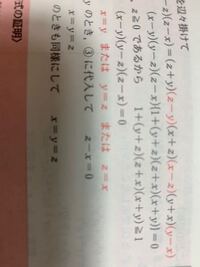 を辺々掛けて
-z)(z-x)=(z+y)(z-y)(x+z)(x-z)(y+x)(y-x)
(x-y)(y-z)(z-x){1+(y+z)(z+x)(x+y)}=0
z≧0 であるから 1+(y+z)(z+x)(x+y)≧1
(x-y)(y-z)(z-x)=0
x=y または y=z または z=x
yのとき, ③に代入して z-x=0
x=y=z
のときも同様にして x=y=z
式の証明〉